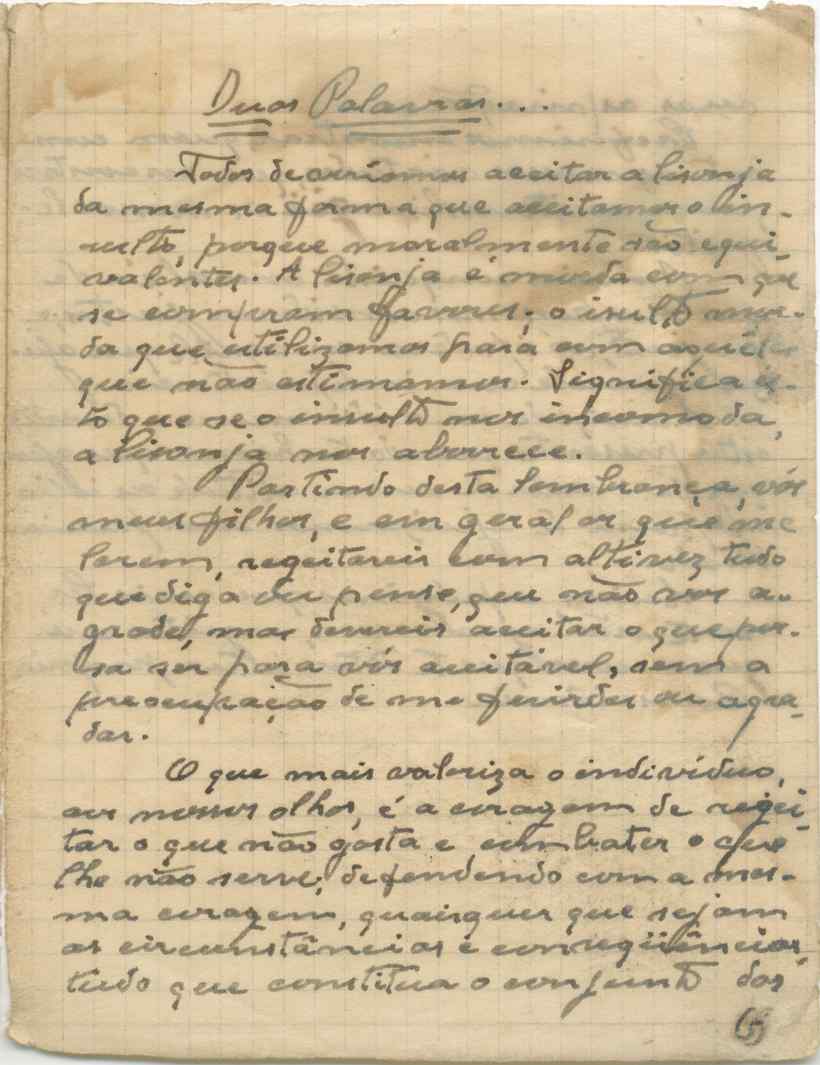 Duas Palavras...
Todos deveríamos aceitar a lisonja
da mesma forma que aceitamos o in-
sulto, porque moralmente são equi-
valentes. A lisonja é moeda com que
se compram favores; o isulto moe-
da que utilizamos para com aquêles
que não estimamos. Significa is-
to que se o insulto nos incomoda,
a lisonja nos aborrece.
Partindo desta lembrança, vós
meus filhos, e em geral os que me
lerem, regeitareis com altivez tudo
que diga ou pense, que não vos a-
grade, mas devereis aceitar o que pos-
sa ser para vós aceitável, sem a
preocupação de me ferirdes ou agra-
dar.
O que mais valoriza o indivíduo,
aos nossos olhos, é a coragem de regei-
tar o que não gosta e combater o que
lhe não serve, defendendo com a mes-
ma coragem, quaisquer que sejam
as circunstâncias e conseqüências,
tudo que constitua o conjunto dos